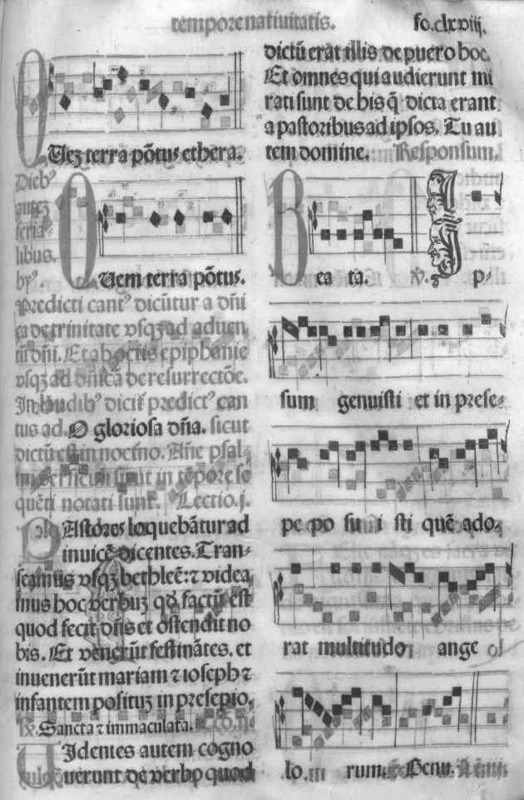 tempore natiuitatis.
fo.clxviij.
Uẽ terra põtus ethera.
Dieb⁹
autẽ
feria-
libus.
hy⁹
Uem terra põtus.
Predicti cant⁹ dicũtur a dñi
ca de trinitate vsqȝ ad aduen
tũ dñi. Et ab octis epiphanie
vsqȝ ad dñicã de resurrectõe.
dieb⁹ dictis predict⁹ can
tus ad. O gloriosa dña. sicut
dictũ est in nocr̃no. psal-
sunt in tẽpore se
quẽti notati sunt. Lectio.j.
PAstores loquebãtur ad
inuicẽ dicentes. Tran-
seamus vsqȝ bethleẽ: ⁊ videa
mus hoc verbuȝ qđ factũ est
quod fecit dñs et ostendit no
bis. Et venerũt festinãtes. et
inuenerũt mariam ⁊ ioseph ⁊
infantem posituȝ in presepio.
℟. Sancta ⁊ immaculata.
UIdentes autem cogno
uerunt de verbo quod
dictũ erat illis de puero hoc.
Et omnes qui audierunt mi
rati sunt de his q̃ dicta erant
a pastoribus ad ipsos. Tu au
tem domine. Responsum.
Bea ta. ℣. I p-
sum genuisti et in prese-
pe po su i sti quẽ ado-
rat multitudo ange
lo rum. Genu.